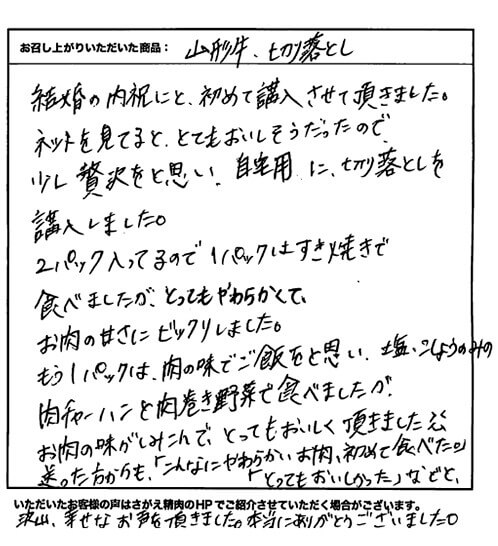 お召し上がりいただいた商品： 山形牛、切り落とし
結婚の内祝にと、初めて講入させて頂きました。
ネットを見てると、とてもおいしそうだったので、
少し贅沢をと思い、自宅用に、切り落としを
講入しました。
2パック入ってるので1パックはすき焼きで
食べましたが、とってもやわらかくて、
お肉の甘さにビックリしました。
もう1パックは、肉の味でご飯をと思い、塩、こしょうのみの
肉チャーハンと肉巻き野菜で食べましたが、
お肉の味がしみこんで、とってもおいしく頂きました
送った方からも、「こんなにやわらかいお肉、初めて食べた。」
「とってもおいしかった」などと、
いただいたお客様の声はさがえ精肉のHPでご紹介させていただく場合がございます。
沢山、幸せなお声を頂きました。本当にありがとうございました。